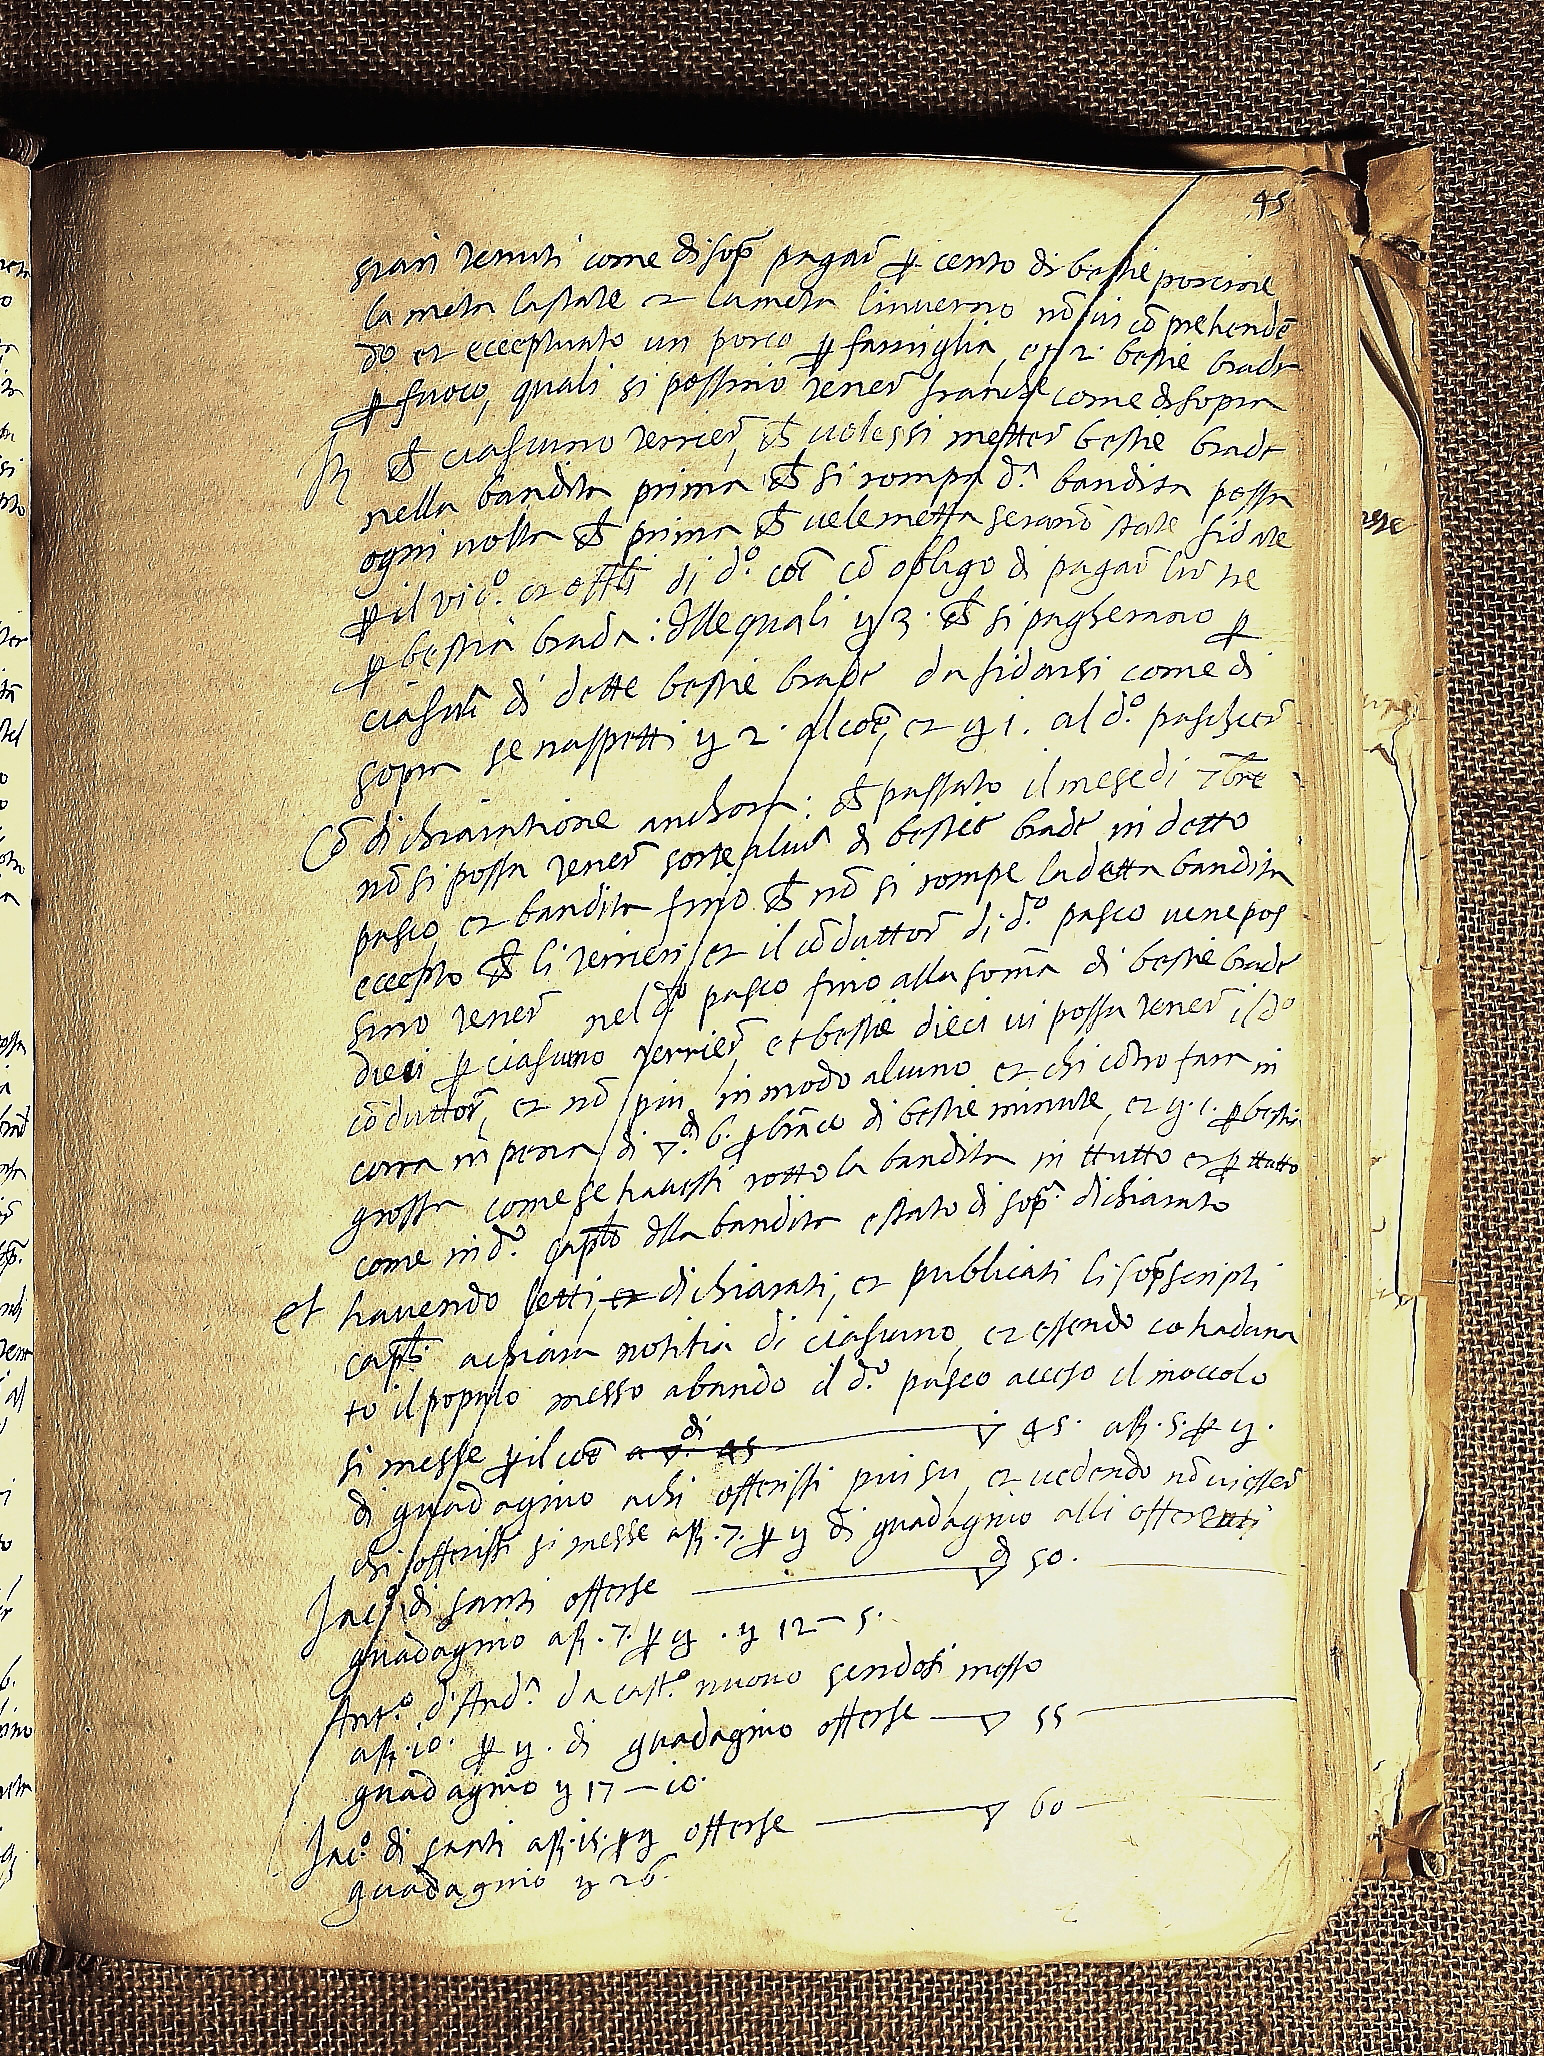 45
sian tenuti come di sop̄ pagar̄ ꝑ cento di bestie porcine
la meta lastate et la meta linuerno nō ui cō prehendē
do et ecceptuato un porco ꝑ famiglia, et 2. bestie brade
ꝑ fuoco, quali si possino tener̄ franche come di sopra
It̄ ch̄ ciascuno terrier̄, ch̄ uolessi metter̄ bestie brade
nella bandita prima ch̄ si rompa d.ᵃ bandita possa
ogni uolta ch̄ prima ch̄ ue le metta seranō state fidate
ꝑ il vic.º et offli di d.º coē cō obligo di pagar̄ lir̄ tre
ꝑ bestia brada: delle quali ɏ 3. ch̄ si pagherano ꝑ
ciascūa di dette bestie brade da fidarsi come di
sopra se naspetti ɏ 2. al coē, et ɏ 1. al d.º paschier̄
Cō dichiaratione anchora: ch̄ passato il mese di 7bre
nō si possa tener̄ sorte alcuᵃ di bestie brade in detto
pasco et bandita fino ch̄ nō si rompe la detta bandita
eccepto ch̄ li terrieri et il cōduttor̄ di d.º pasco uene pos
sino tener̄ nel d.º pasco fino alla som̄a di bestie brade
dieci ꝑ ciascuno terrier̄, et bestie dieci ui possa tener̄ il dº
cōduttor̄, et nō piu in modo alcuno et chi cōtro fara in
corra in pena di ▽.di 6. ꝑ brāco di bestie minute, et ɏ. 1. ꝑ bestia
grossa come se hauessi rotto la bandita in ttutto et ꝑ ttutto
come in d.º caplo dlla bandita e stato di sop.ᵃ dichiarato
et hauendo letti, et dichiarati, et publicati li sop̄scripti
capli achiara notitia di ciascuno, et essendo cohaduna
to il populo messo abando il d.º pasco acceso il moccolo
si messe ꝑ il coē a ▽.di 45 ▽ 45. aß. 5. ꝑ ɏ.
di guadagnio achi offerissi piu su, et uedendo nō ui esser̄
chi offerissi si messe aß. 7. ꝑ ɏ di guadagnio alli offerenti
Jac.º di santi offerse ▽di 50.
guadagnio aß. 7. ꝑ ɏ. ɏ 12 — 5.
Ant.º d'And.ᵃ da cast.º nuouo sendosi messo
aß. 10. ꝑ ɏ. di guadagnio offerse ▽ 55
guadagnio ɏ 17 — 10.
Jac.º di santi aß. 15. ꝑ ɏ offerse ▽ 60
guadagnio ɏ 26.